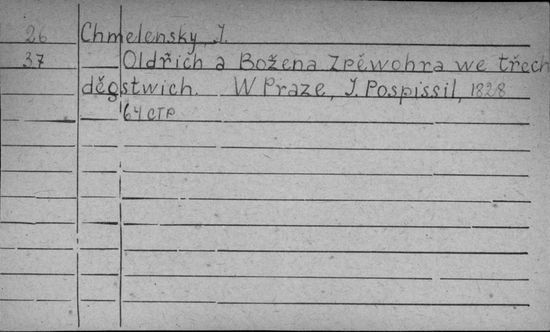 26 Chmelensky, J.
37 Oldřich a Božena Zpěwohra we třech
děgstwich. W Praze, J. Pospissil, 1828
64 стр